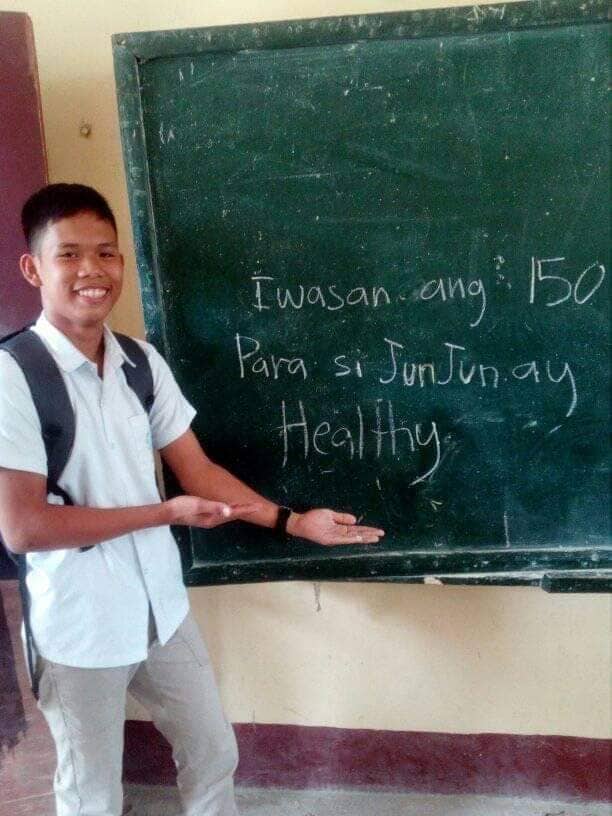 Iwasan ang 150
Para si JunJun ay
Healthy.